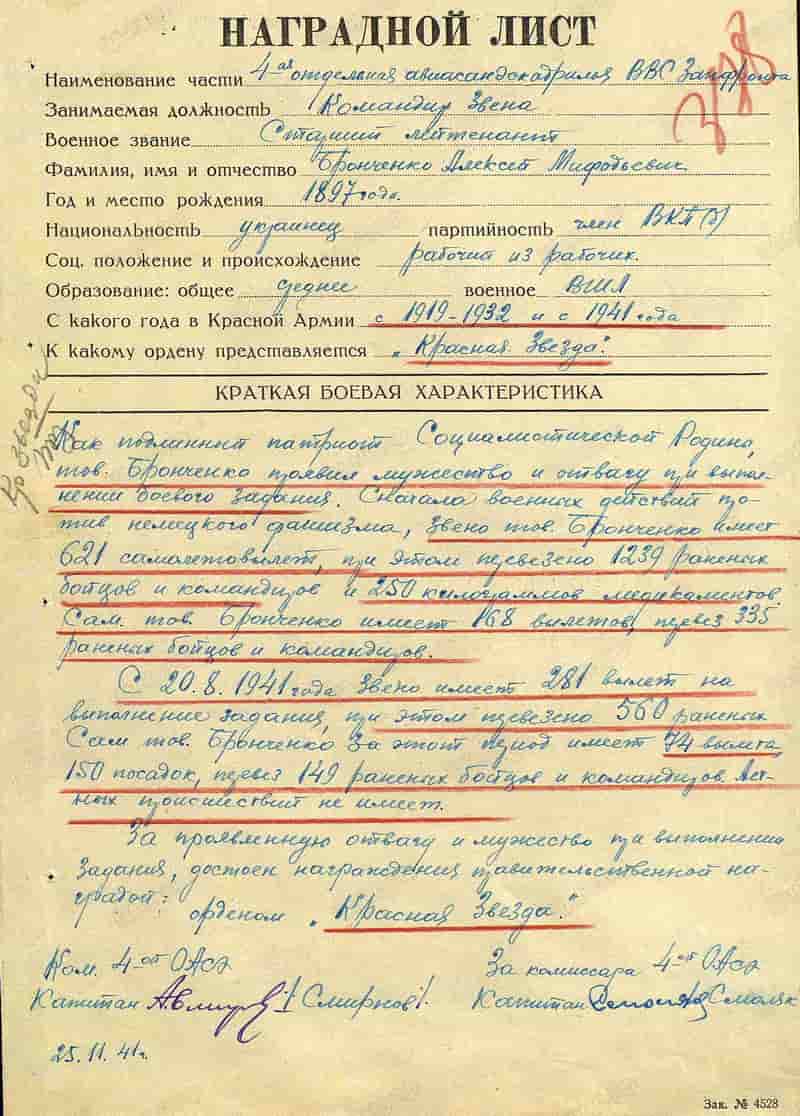 НАГРАДНОЙ ЛИСТ
378
Наименование части 4-ая отдельная авиасанэскадрилья ВВС Запфронта
Занимаемая должность Командир Звена
Военное звание Старший лейтенант
Фамилия, имя и отчество Бронченко Алексей Мифодьевич
Год и место рождения 1897 года.
Национальность украинец партийность член ВКП(б)
Соц. положение и происхождение рабочий из рабочих.
Образование: общее среднее военное ВШЛ
С какого года в Красной Армии с 1919-1932 и с 1941 года
К какому ордену представляется „Красная Звезда".
КРАТКАЯ БОЕВАЯ ХАРАКТЕРИСТИКА
Кр звезды
Как подлинный патриот Социалистической Родины,
тов. Бронченко проявил мужество и отвагу при выпол-
нении боевого задания. Сначала военных действий про-
тив немецкого фашизма, звено тов. Бронченко имеет
621 самолетовылет, при этом перевезено 1239 раненых
бойцов и командиров и 250 килограммов медикаментов
Сам тов. Бронченко имеет 168 вылетов, перевез 335
раненых бойцов и командиров.
С 20.8.1941 года звено имеет 281 вылет на
выполнение задания, при этом перевезено 560 раненых
Сам тов. Бронченко за этот период имеет 74 вылета,
150 посадок, перевез 149 раненых бойцов и командиров. Лет-
ных происшествий не имеет.
За проявленную отвагу и мужество при выполнении
задания, достоен награждения правительственной на-
градой:
орденом „Красная Звезда".
Ком. 4-ой ОАСЭ За комиссара 4-ой ОАСЭ
Капитан /Смирнов/. Капитан /Смоляк
25.11.41г.
Зак. № 4528